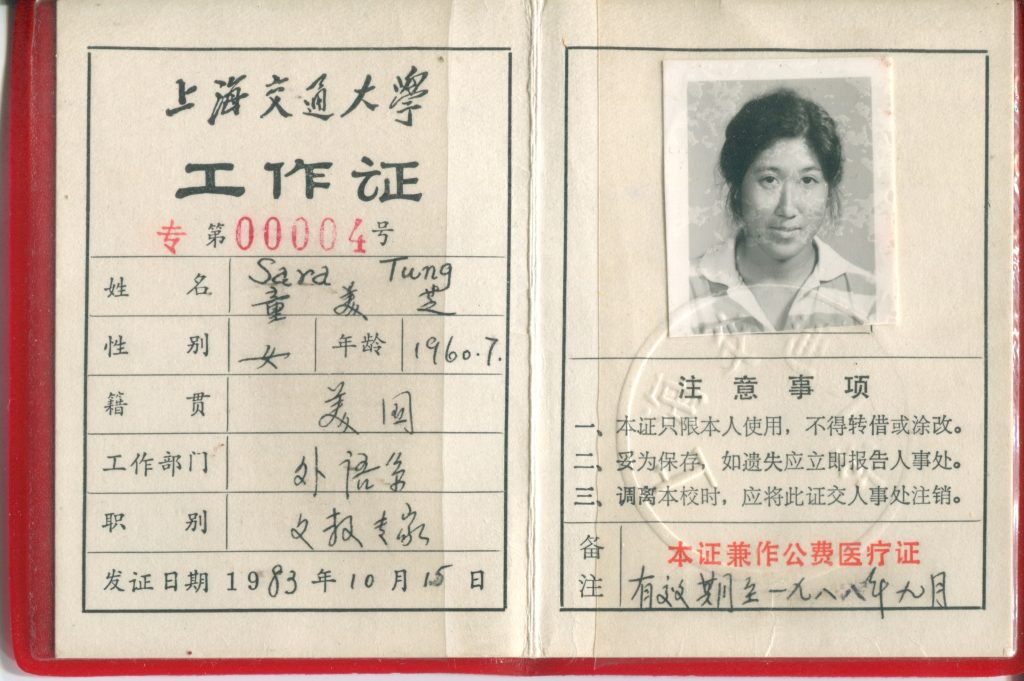 上海交通大學
工作证
专 第00004号
姓 名 Sara Tung
童美芝
性 别 女 年龄 1960.7.
籍 贯 美国
工作部门 外语系
职 别 文教专家
发证日期 1983年10月15日
注意事项
一、本证只限本人使用，不得转借或涂改。
二、妥为保存，如遗失应立即报告人事处。
三、调离本校时，应将此证交人事处注销。
备注 本证兼作公费医疗证
有效期至一九八八年九月